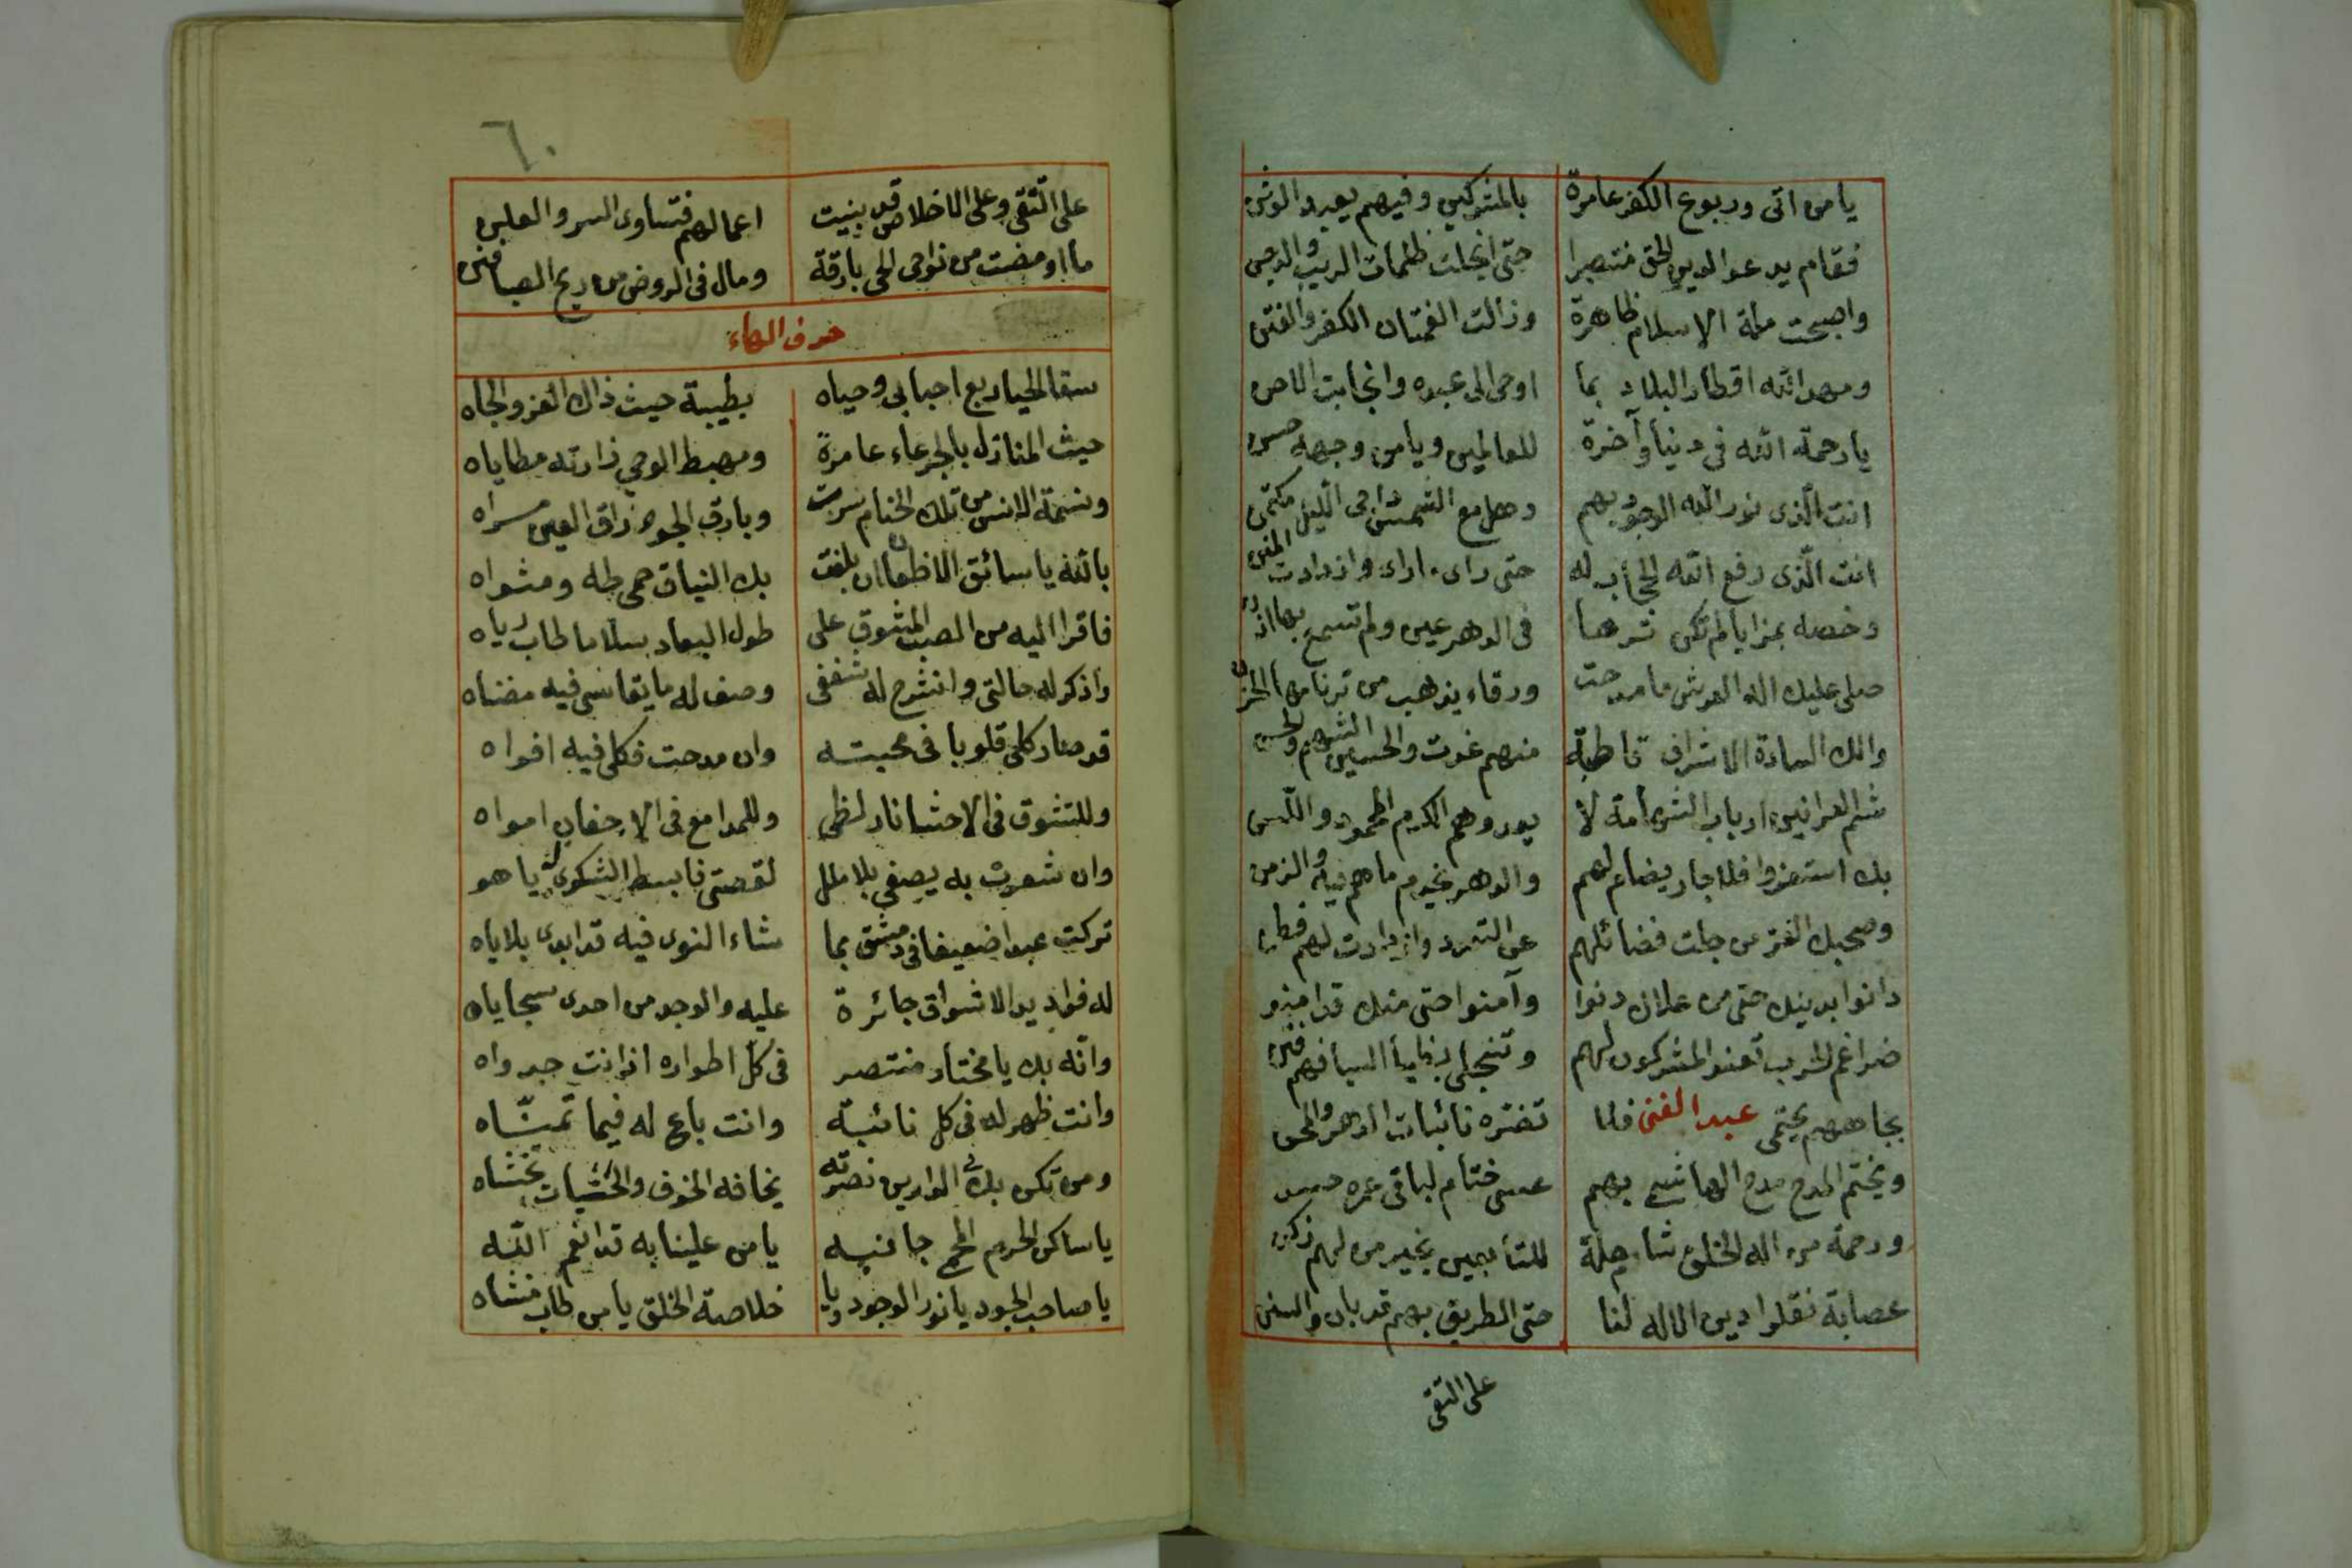 يا من اتى وربوع الكفر عامرة بالمشركين وفيهم يعبد الوثن
فقام يدعو الدين الحق منتصرا حتى انجلت ظلمات الريب والدجن
واصبحت ملة الاسلام ظاهرة وزالت الغمتان الكفر والفتن
ومهد الله اقطار البلاد بما اوحى الى عبده وانجابت الاحن
يا رحمة الله في دنيا وآخرة للعالمين ويا من وجهه حسن
انت الذى نور الله الوجود بهم وهل مع الشمس داجى الليل مكتمن
انت الذى رفع الله الحجاب له حتى راى ما راى وازدادت المنن
وخصه بمزايا لم تكن شرها فى الدهر عين ولم تسمع بها اذن
صلى عليك اله العرش ما صدحت ورقاء يذهب من ترنامها الحزن
والك السادة الاشراف قاطبة منهم غوث والحسين الشهم والحسن
شم العرانين ارباب الشهامة لا يعدوهم الكرم المحمود واللسن
بك استعزوا فلا جار يضام لهم والدهر يخدم ما هم فيه والزمن
وصحبك الغر من جلت فضائلهم عن التعدد وازدادت لهم فطن
دانوا بدينك حتى من علاك دنوا وآمنوا حتى منك قد امنوا
ضراغم الحرب تعنو المشركون لهم وتنجلى بظبا اسيافهم فتن
بجاههم يحتمى عبد الغنى فلا تضره نائبات الدهر والمحن
ويختم المدح مدح الهاشمى بهم عسى ختام لباقى عمره حسن
ورحمة من اله الخلق شاملة للتابعين بخير من لهم زكن
عصابة نقلوا دين الاله لنا حتى الطريق بهم قد بان والسنن
على التقى
٦٠
على التقى وعلى الاخلاص قد بنيت اعمالهم فتساوى السر والعلن
ما اومضت من نواحى الحى بارقة ومال فى الروض من ريح الصبا فنن
حرف الهاء
سقا الحيا ربع احبابى وحياه بطيبة حيث ذاك العز والجاه
حيث المنازل بالجرعاء عامرة ومهبط الوحي زارته مطاياه
ونسمة الانس من تلك الخيام سرت وبارق الجود راق العين مسراه
بالله يا سائق الاظعان ان بلغت بك النياق حمى طه ومثواه
فاقرا اليه من الصب المشوق على طول البعاد سلاما طاب رياه
واذكر له حالتى وانشرح له شغفى وصف له ما يقاسى فيه مضناه
قد صار كلى قلوبا فى محبته وان مدحت فكلى فيه افواه
وللتشوق فى الاحشا نار لظى وللمدامع فى الاجفان امواه
وان شعرت به يصغى بلا ملل لقصتى فابسط الشكوى له يا هو
تركت عبدا ضعيفا فى دمشق بما شاء النوى فيه قد ابدى بلاياه
له فؤاد يد الاشواق جائرة عليه والوجد من احدى سجاياه
وانه بك يا مختار منتصر فى كل اطواره اذ انت جدواه
وانت ظهر له فى كل نائبة وانت باع له فيما تمناه
ومن تكن بك فى الدارين نصرته يخافه الخوف والخشيات تخشاه
يا ساكن الحرم المحمى جانبه يا من علينا به قد انعم الله
يا صاحب الجود يا نور الوجود ويا خلاصة الخلق يا من طاب منشاه